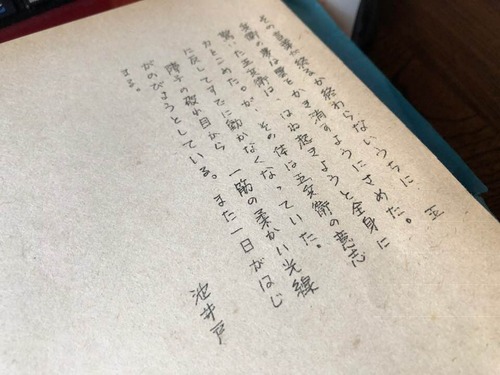 その言葉が終るか終わらないうちに、五
兵衛の夢は墨をかき消すようにさめた。
驚いた五兵衛は、はね起きようと全身に
力をこめた。が、その体は五兵衛の意志
に反してすでに動かなくなっていた。
障子の破れ目から、一筋の柔かい光線
がのびようとしている。また一日がはじ
まる。
池井戸